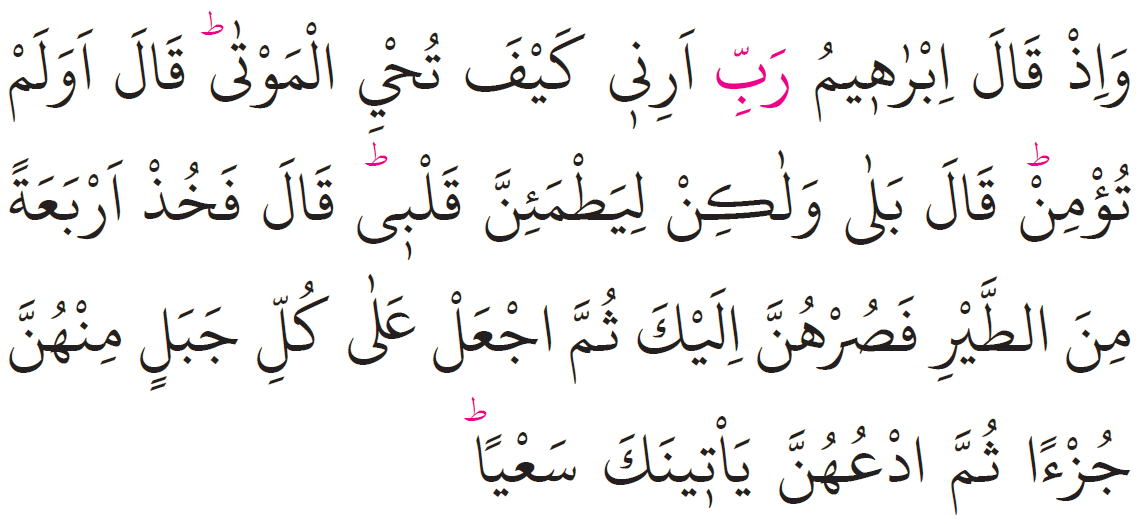 وَاِذْ قَالَ اِبْرٰهٖيمُ رَبِّ اَرِنٖى كَيْفَ تُحْيِ الْمَوْتٰىؕ قَالَ اَوَلَمْ
تُؤْمِنْؕ قَالَ بَلٰى وَلٰكِنْ لِيَطْمَئِنَّ قَلْبٖىؕ قَالَ فَخُذْ اَرْبَعَةً
مِنَ الطَّيْرِ فَصُرْهُنَّ اِلَيْكَ ثُمَّ اجْعَلْ عَلٰى كُلِّ جَبَلٍ مِنْهُنَّ
جُزْءًا ثُمَّ ادْعُهُنَّ يَاْتٖينَكَ سَعْيًاؕ